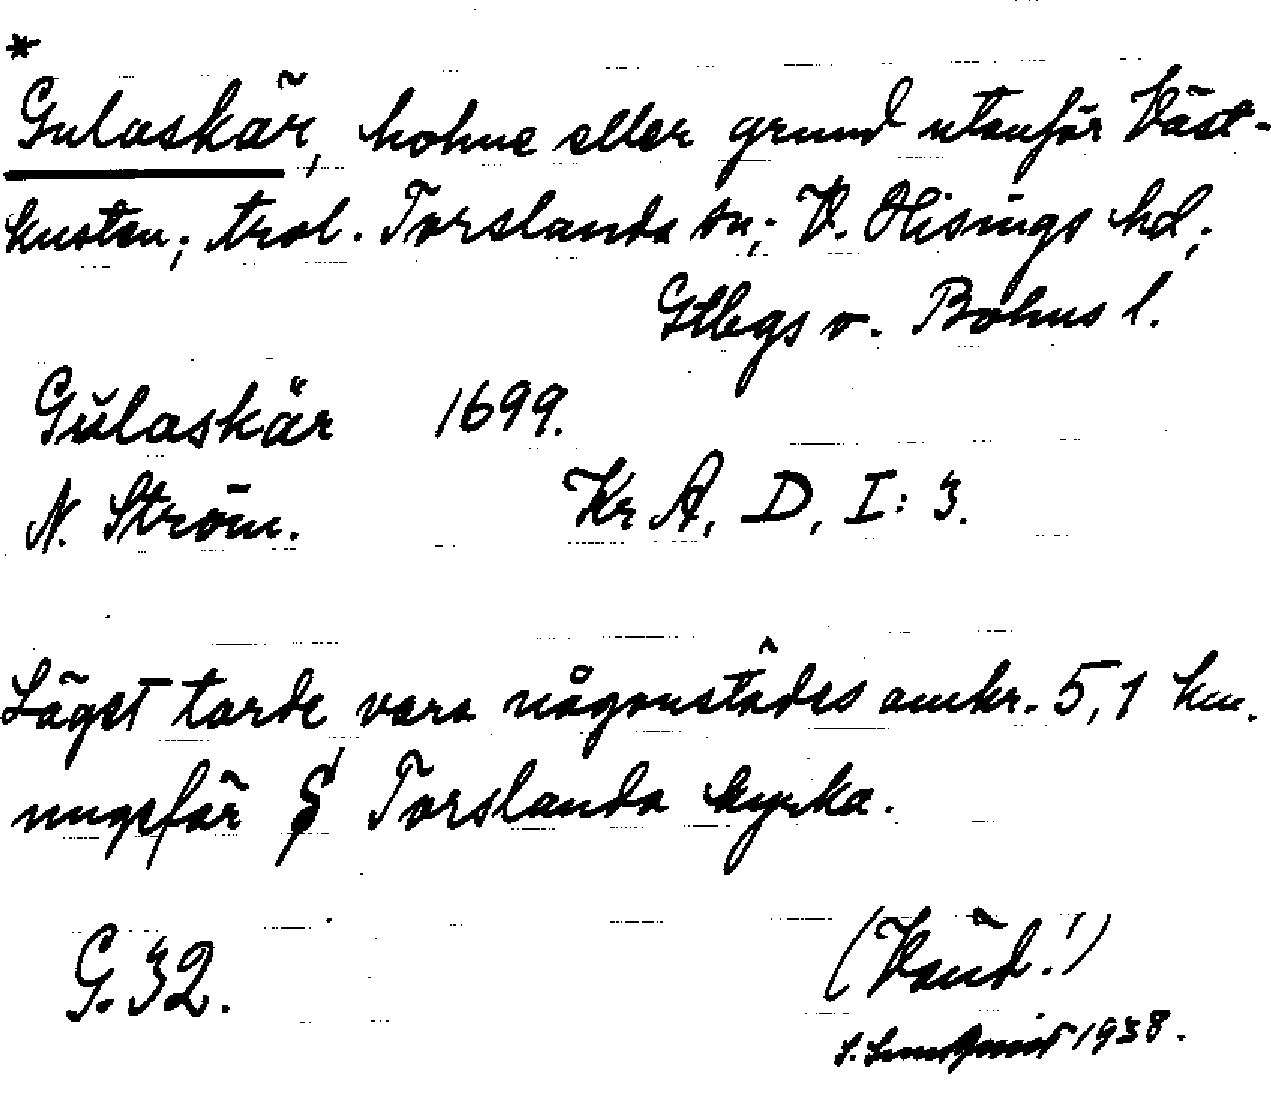 *
Gulaskär, holme eller grund utanför Väst-
kusten; trol. Torslanda sn; V. Hisings hd;
Gtbgs o. Bohus l.
Gŭlaskär 1699.
N. Ström. Kr A, D, I: 3.
Läget torde vara någonstädes omkr. 5,1 km.
ungefär S Torslanda kyrka.
G. 32. (Vänd!)
S. Lundquist 1938.